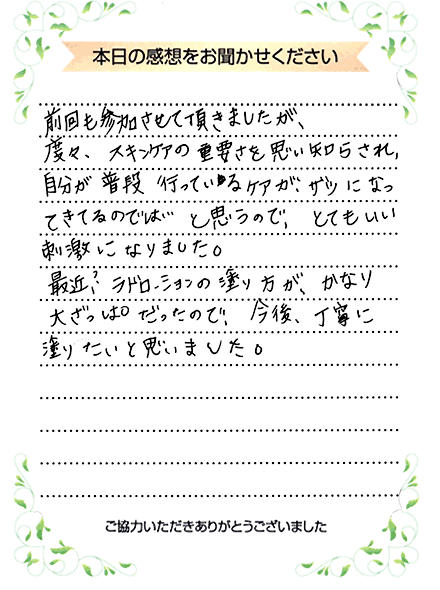 本日の感想をお聞かせください
前回も参加させて頂きましたが、
度々、スキンケアの重要さを思い知らされ、
自分が普段行っているケアが、ザツになっ
てきてるのでは… と思うので、とてもいい
刺激になりました。
最近、ラドローションの塗り方が、かなり
大ざっぱだったので、今後、丁寧に
塗りたいと思いました。
ご協力いただきありがとうございました